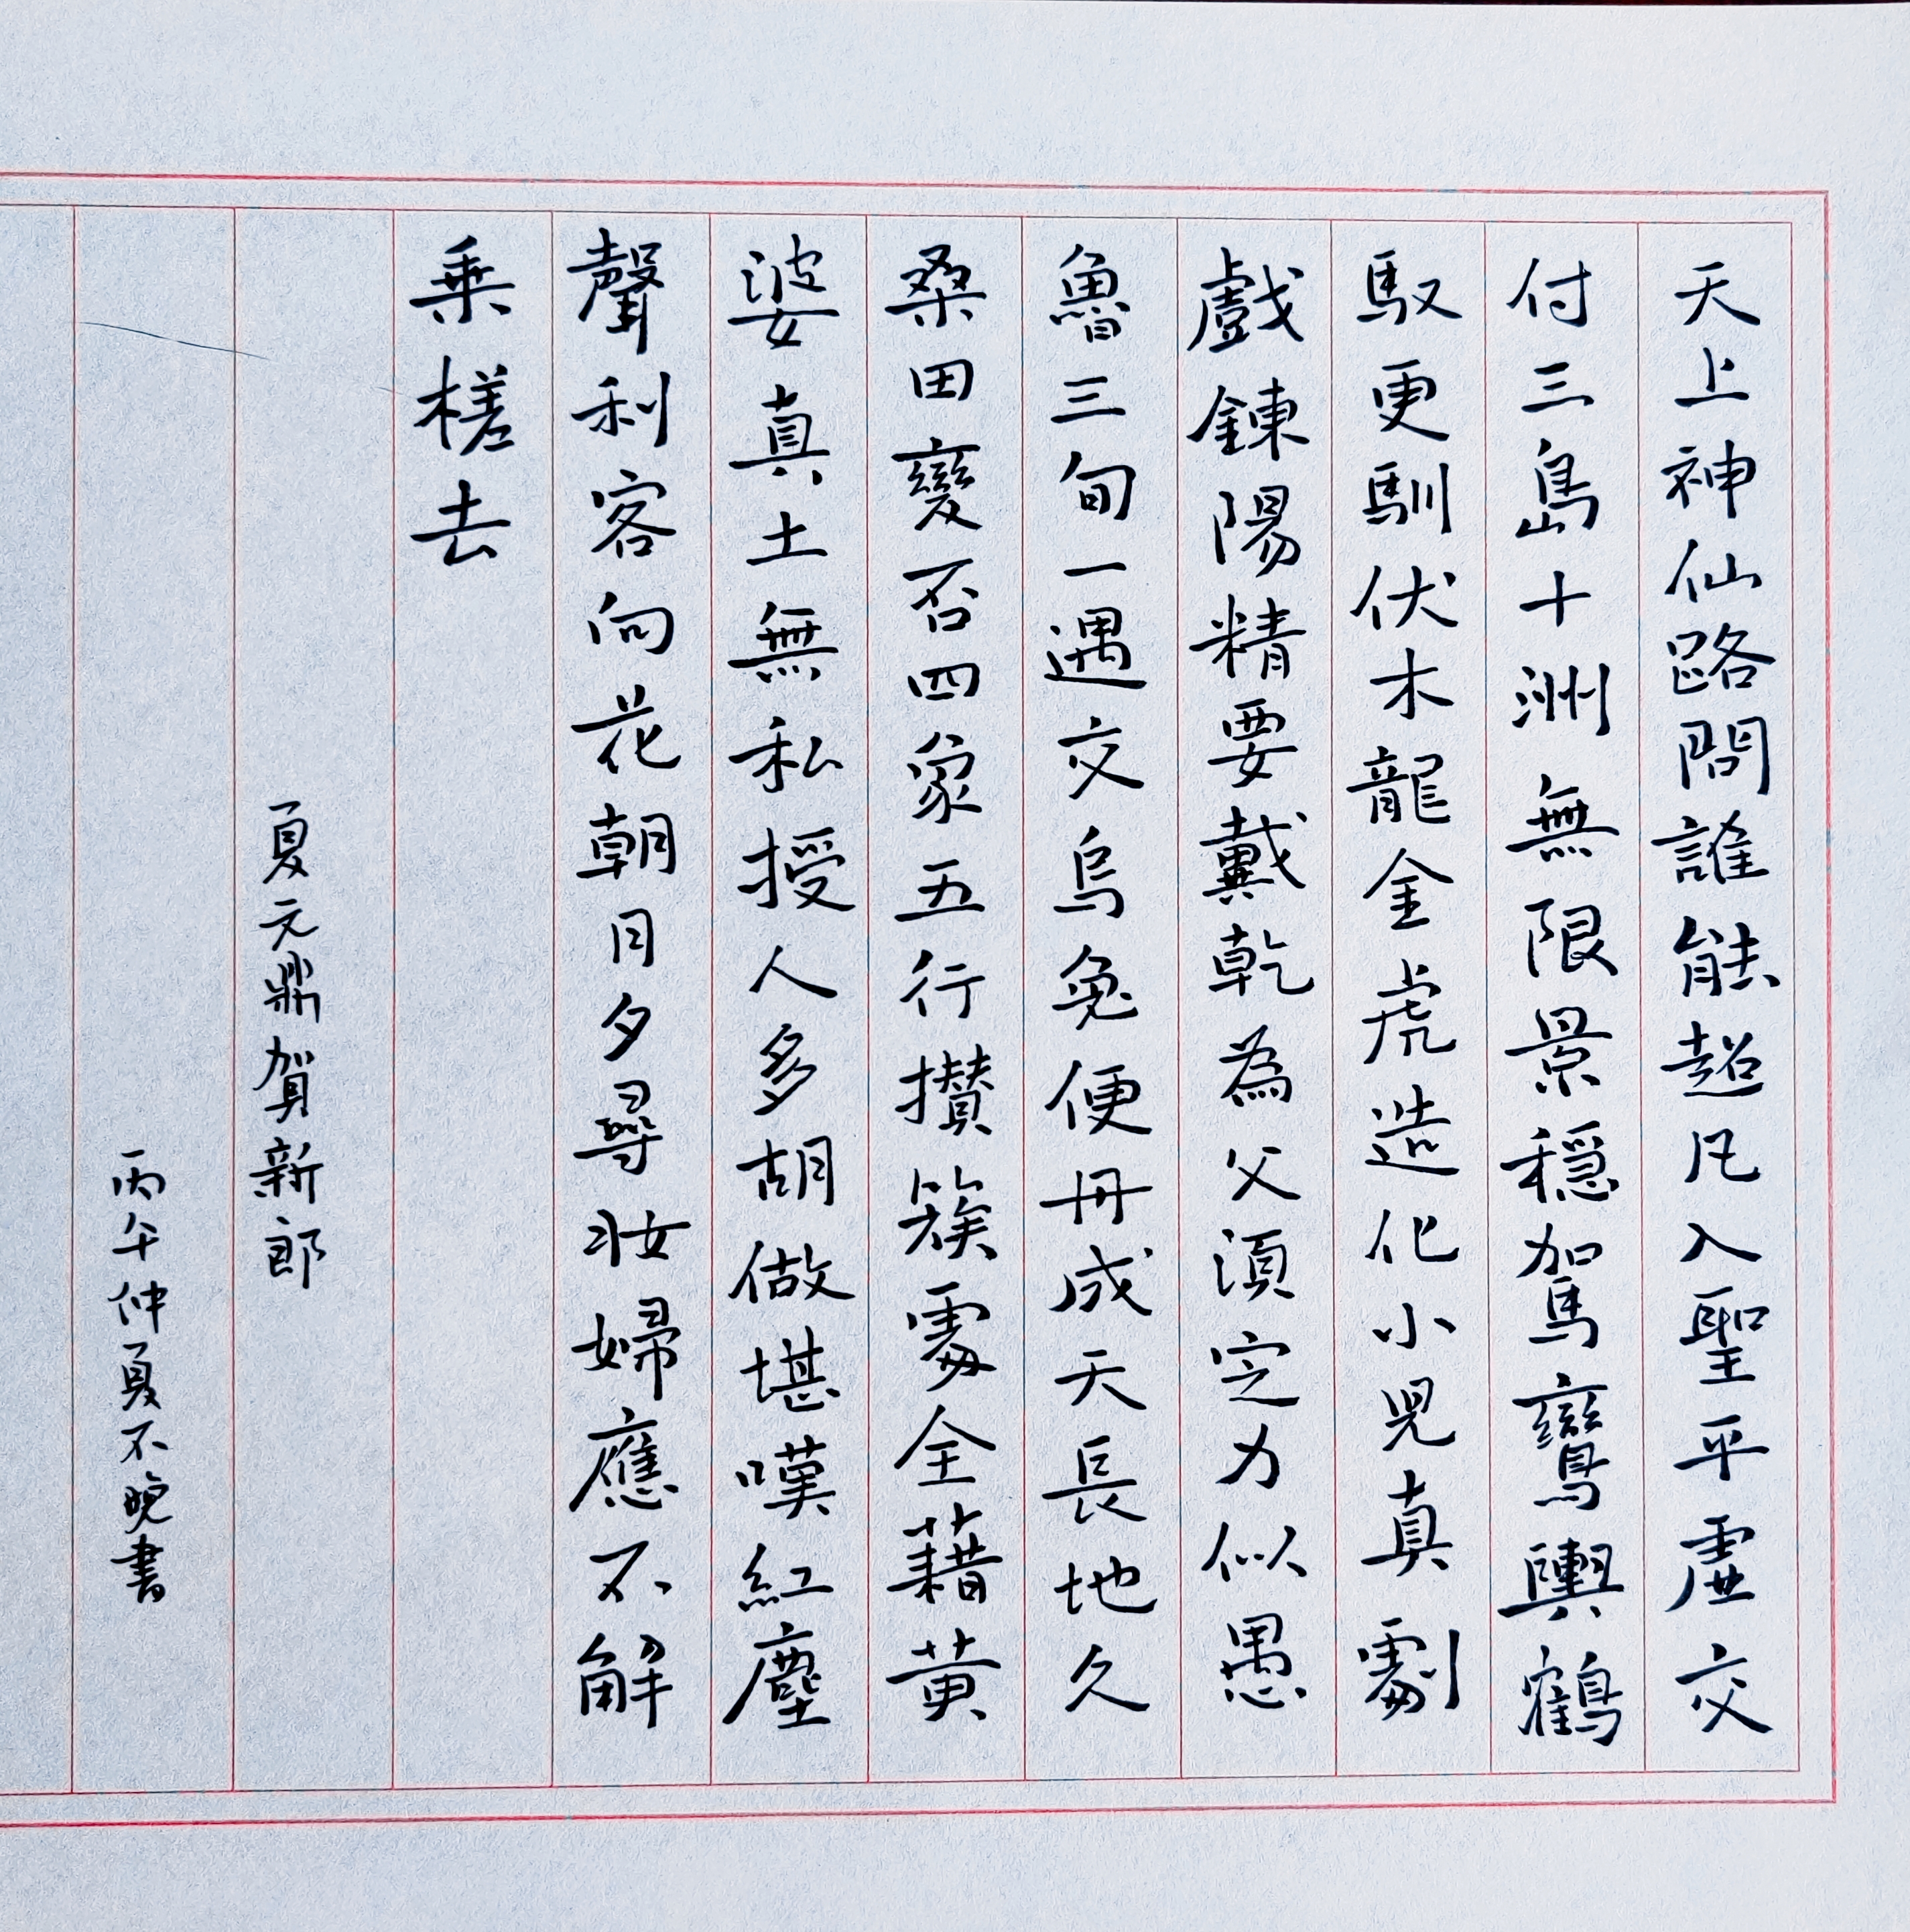 天上神仙路問誰能超凡入聖平虛交
付三島十洲無限景穩駕鸞輿鶴
馭更馴伏木龍金虎造化小兒真劇
戲鍊陽精要戴乾為父須定力似愚
魯三旬一遇交烏兔便丹成天長地久
桑田變否四象五行攢簇處全藉黃
婆真土無私授人多胡做堪嘆紅塵
聲利客向花朝月夕尋妝婦應不解
乘槎去
夏元鼎賀新郎
丙午仲夏不晚書